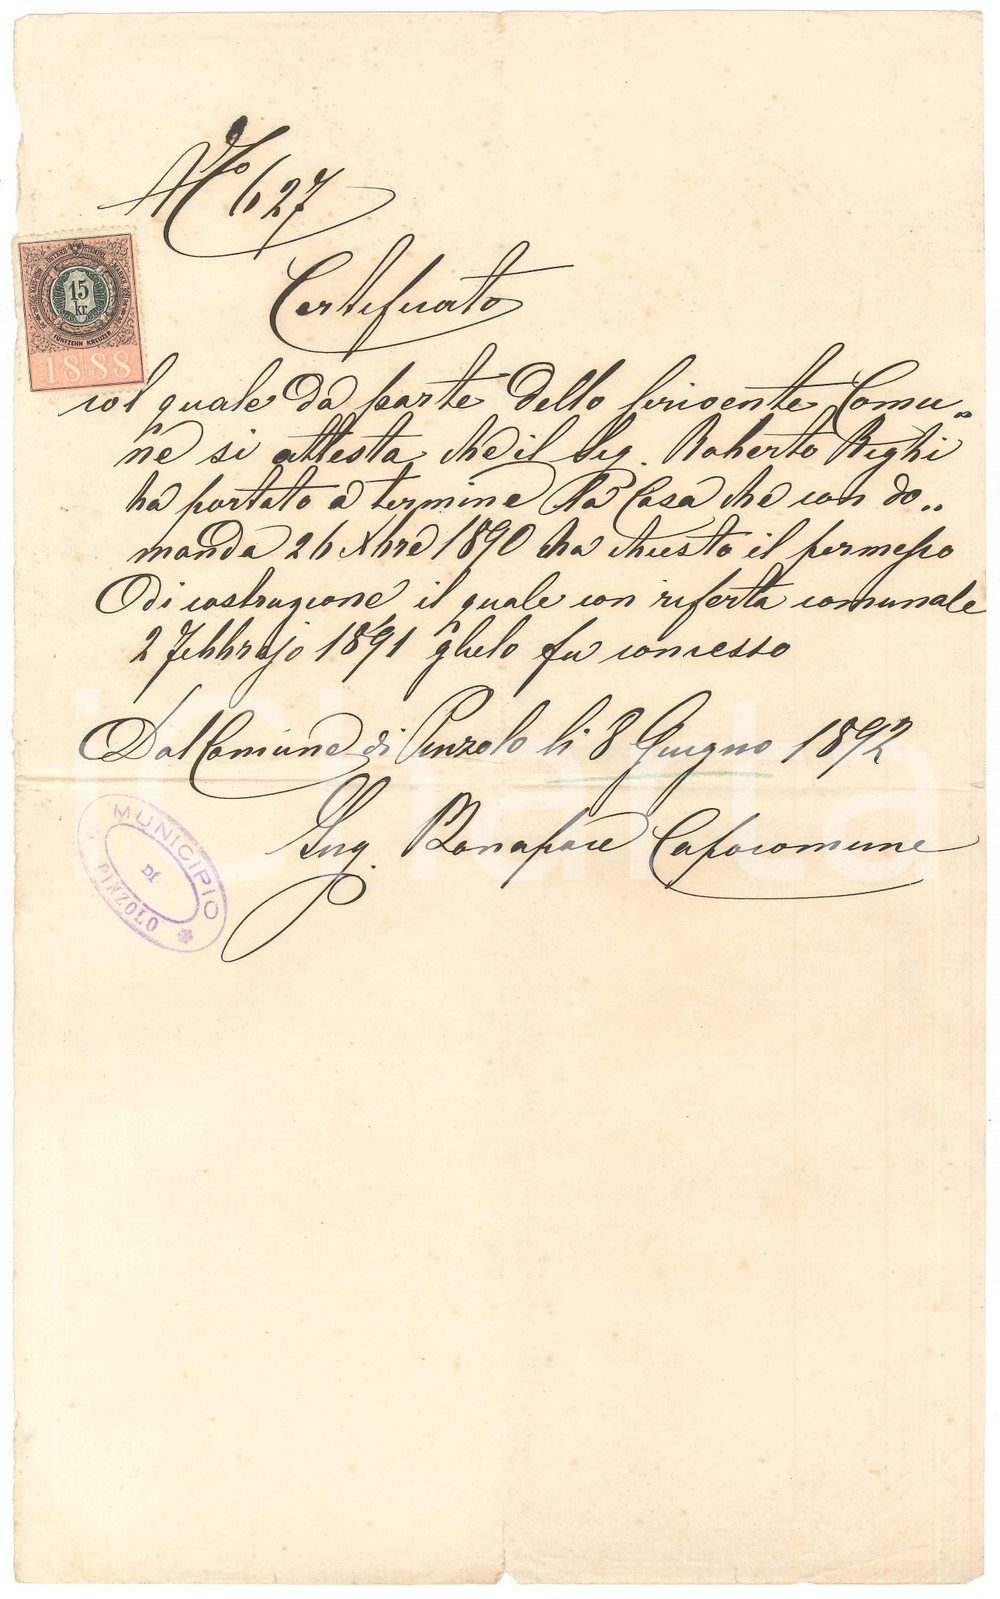 No 627
15
kr
FÜNFZEHN KREUZER
1888
Certificato
col quale da parte dello scrivente Comu„
ne si attesta che il Sig. Roberto Righi
ha portato a termine la Casa che con do„
manda 26 Xbre 1890 ha chiesto il permesso
di costruzione il quale con riferta comunale
2 Febbrajo 1891 glielo fu concesso
Dal Comune di Pinzolo li 8 Giugno 1892
Bonapace Capocomune
MUNICIPIO
DI
PINZOLO